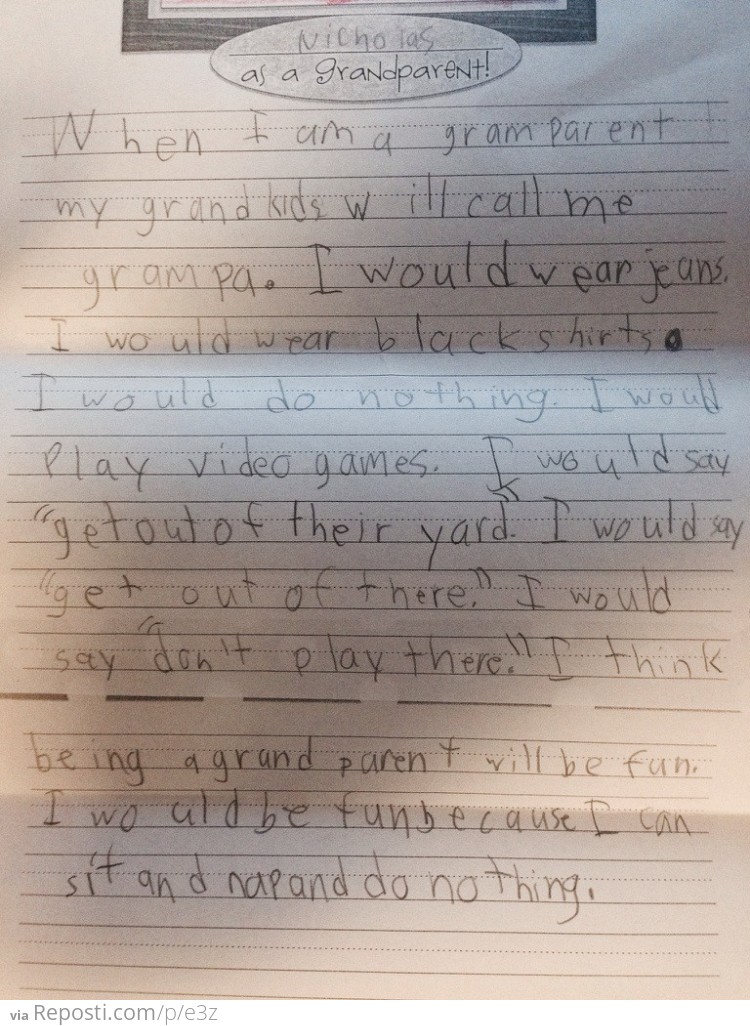 Nicholas
as a grandparent!
When I am a gramparent
my grandkids will call me
grampa. I would wear jeans.
I would wear black shirts.
I would do nothing. I would
Play video games. I would say
"get out of their yard." I would say
"get out of there." I would
say "don't play there." I think
being a grandparent will be fun.
I would be fun because I can
sit and nap and do nothing.
via Reposti.com/p/e3z